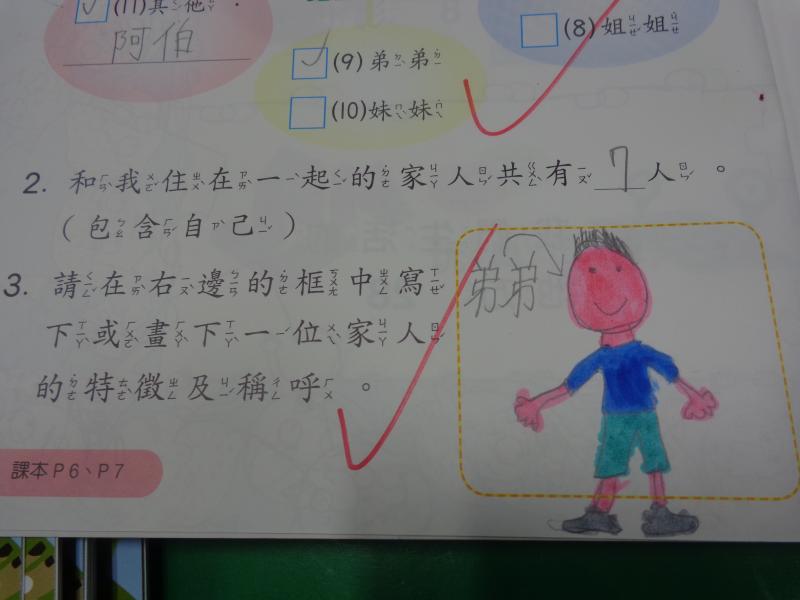 (11)其他：
阿伯
(8)姐姐
(9)弟弟
(10)妹妹
2. 和我住在一起的家人共有7人。
（包含自己）
3. 請在右邊的框中寫
下或畫下一位家人
的特徵及稱呼。
弟弟
課本P6、P7